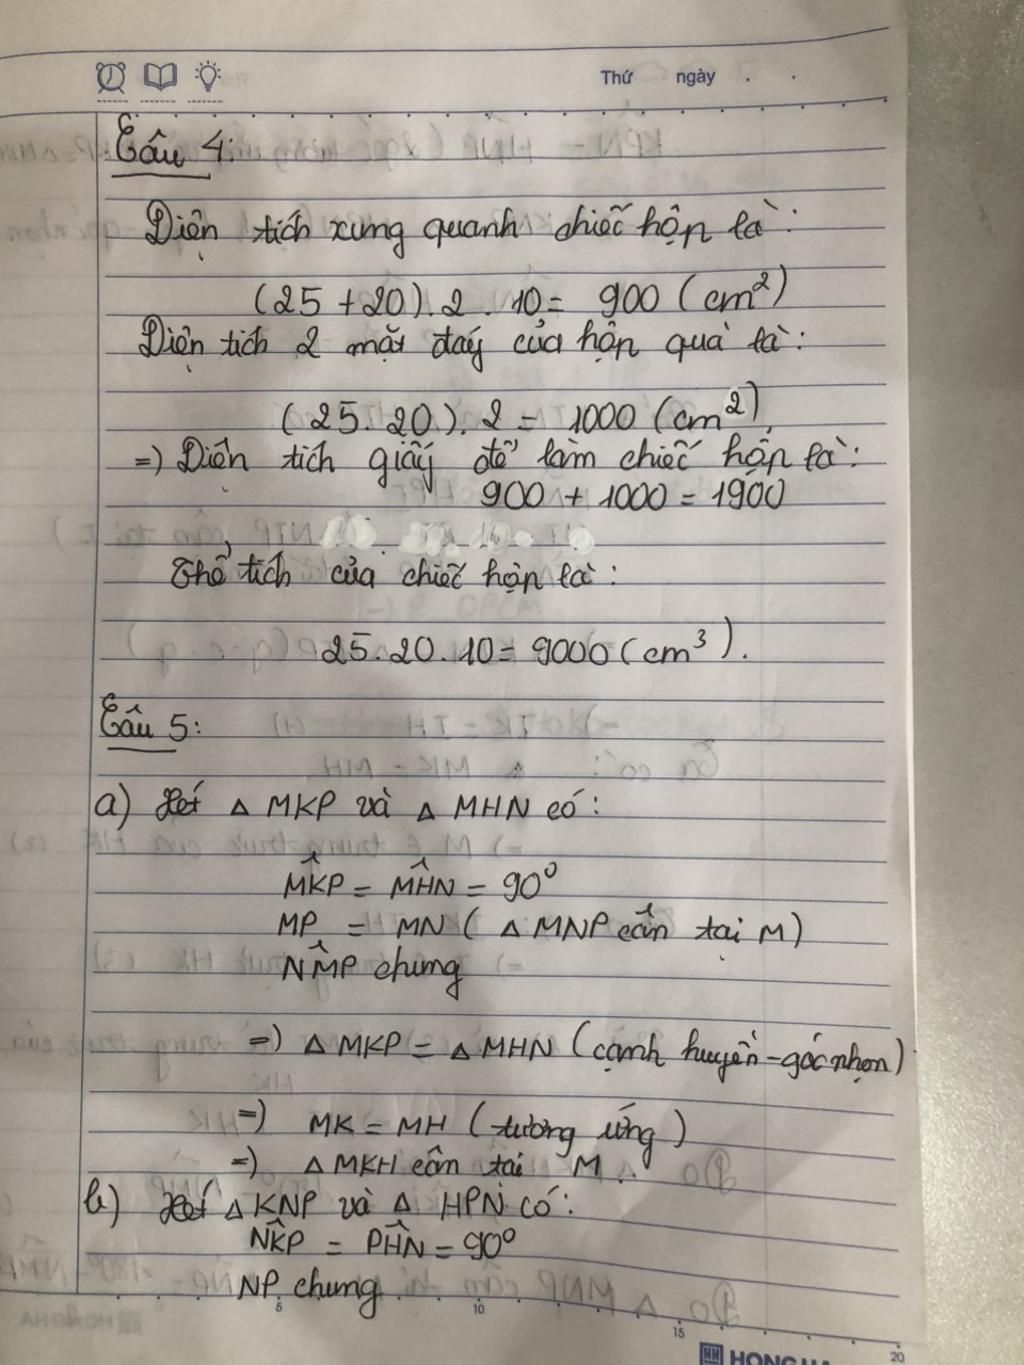 Thứ ngày . .
Câu 4:
Diện tích xung quanh chiếc hộp là:
(25 + 20) . 2 . 10 = 900 (cm²)
Diện tích 2 mặt đáy của hộp quà là:
(25 . 20) . 2 = 1000 (cm²)
=) Diện tích giấy để làm chiếc hộp là:
900 + 1000 = 1900
Thể tích của chiếc hộp là:
25 . 20 . 10 = 9000 (cm³).
Câu 5:
a) Xét △ MKP và △ MHN có:
MK̂P = MĤN = 90⁰
MP = MN ( △ MNP cân tại M)
NM̂P chung
=) △ MKP = △ MHN (cạnh huyền - góc nhọn)
=) MK = MH (tương ứng)
=) △ MKH cân tại M.
b) Xét △ KNP và △ HPN có:
NK̂P = PĤN = 90⁰
NP chung
5 10 15 20
HONG HA